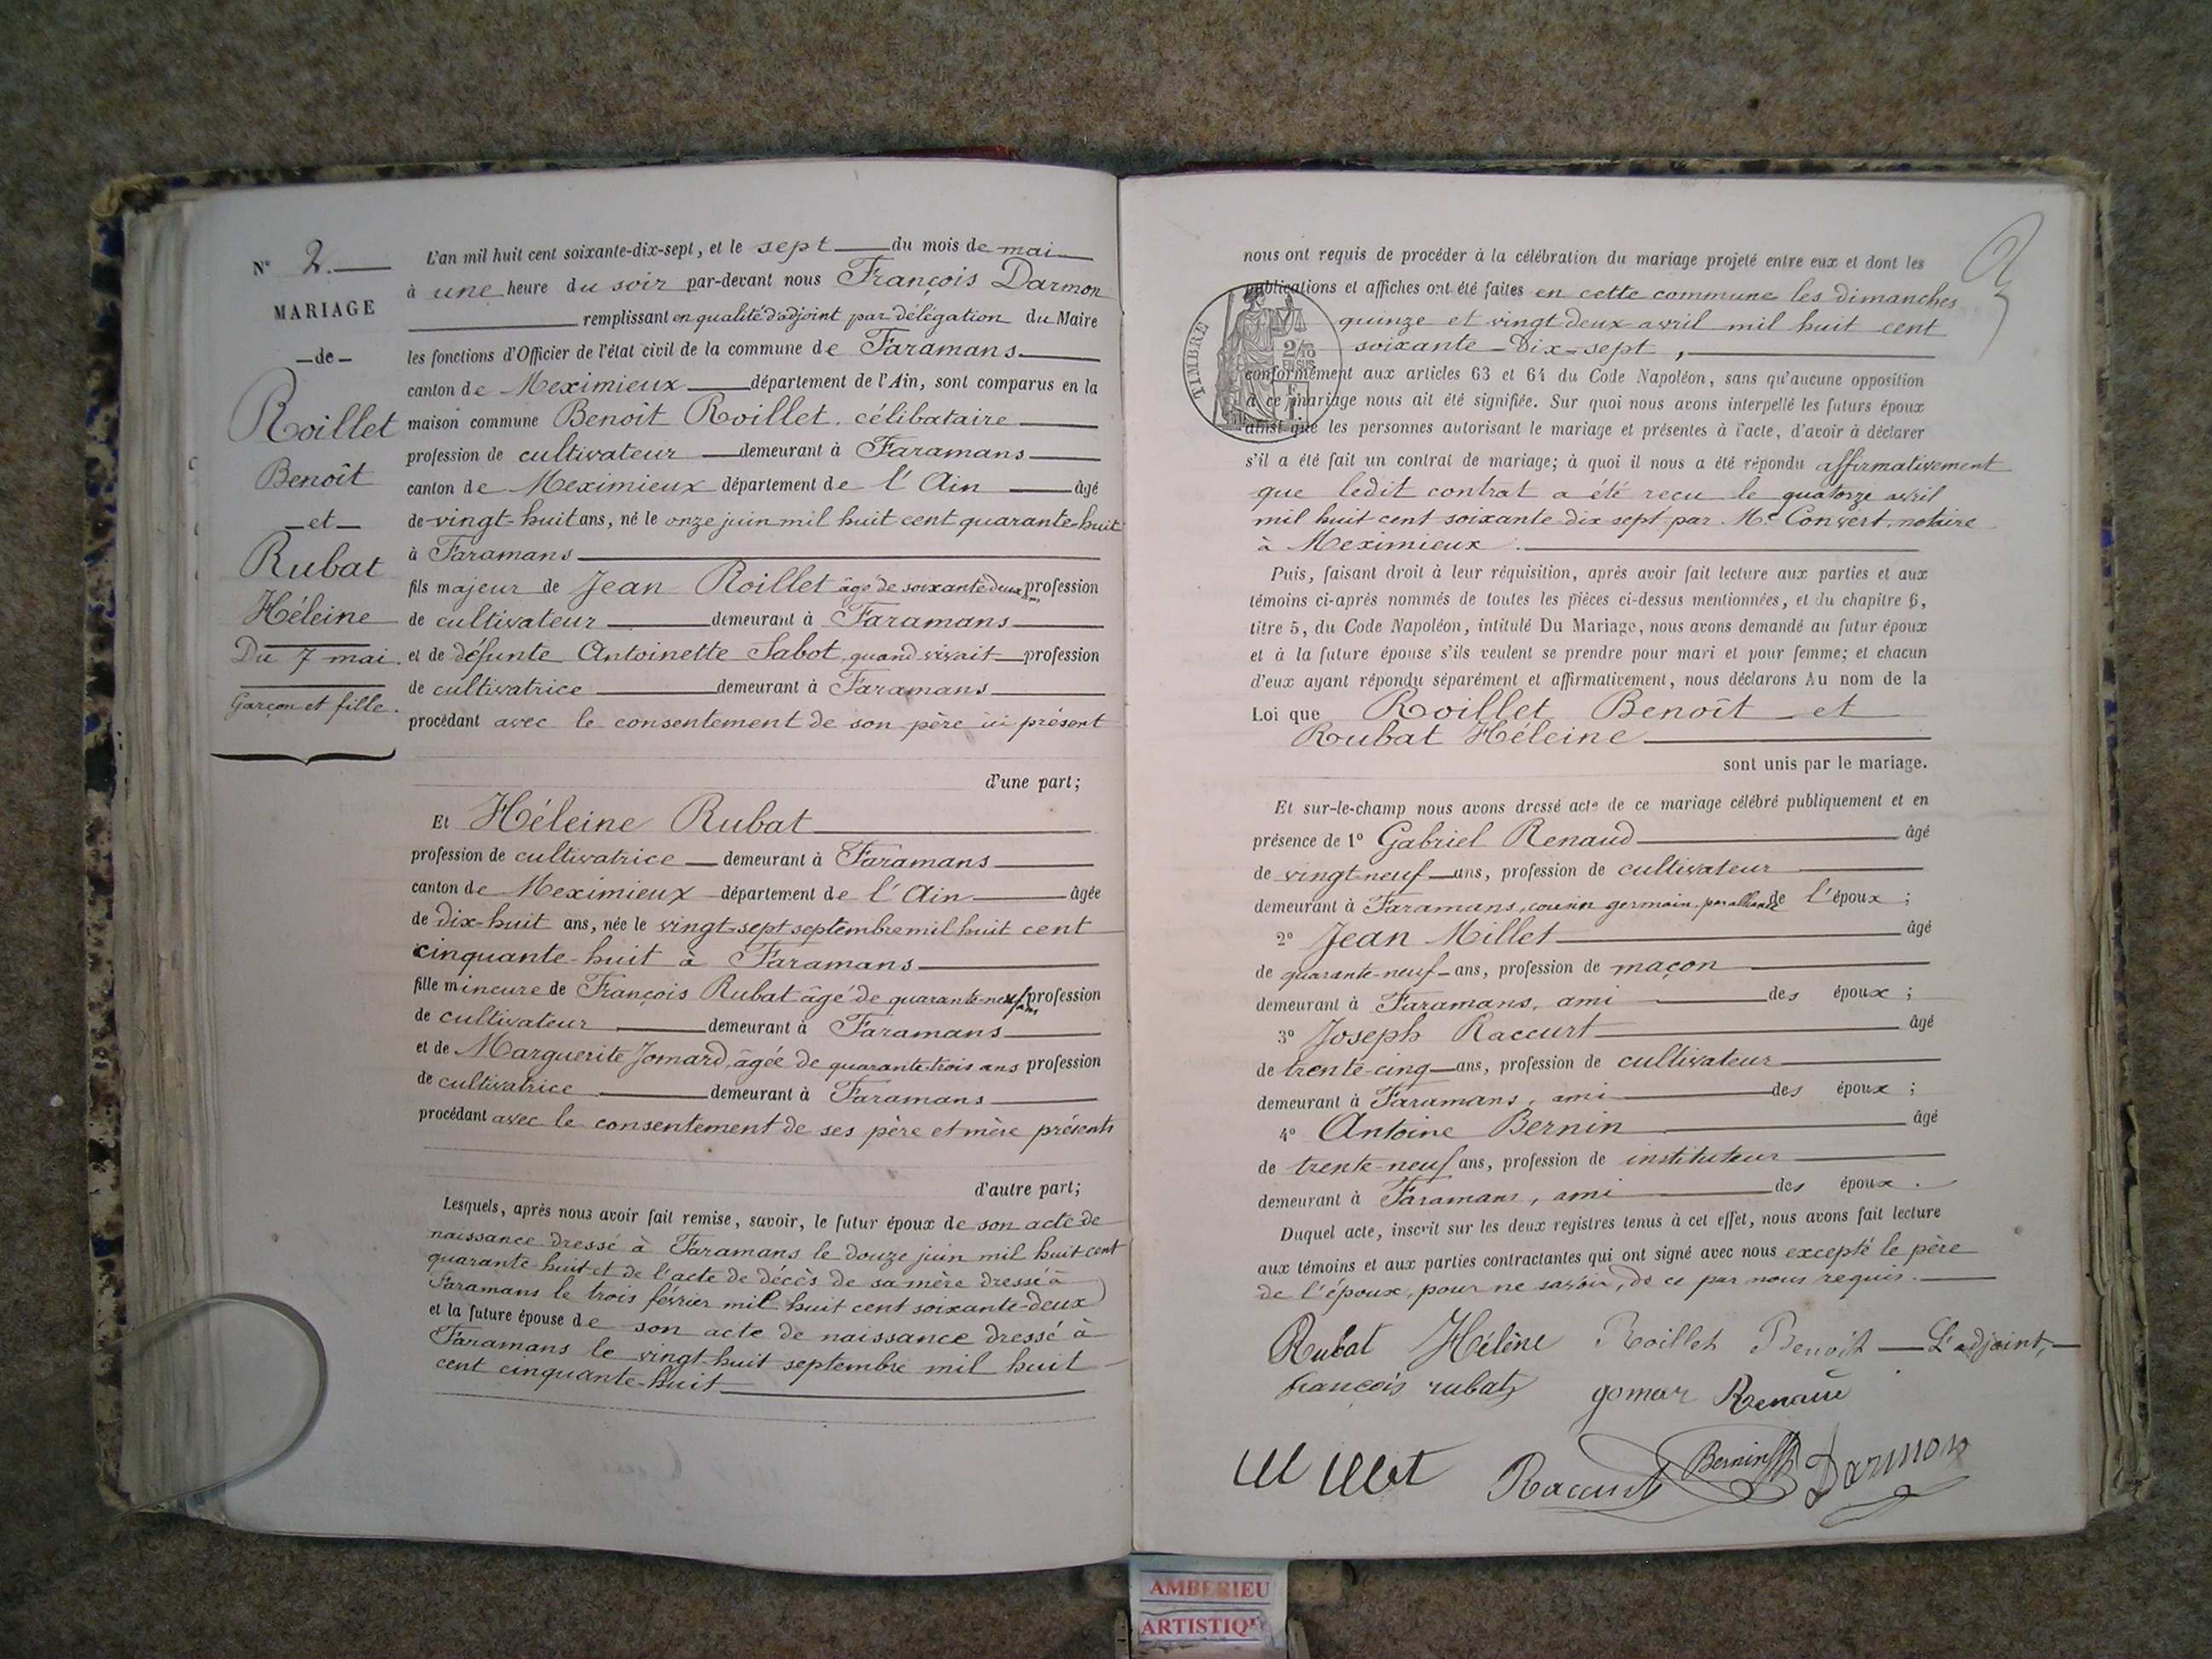 N° 2.
MARIAGE
de
Roillet
Benoît
et
Rubat
Héleine
Du 7 mai.
Garçon et fille.
L'an mil huit cent soixante-dix-sept, et le sept du mois de mai
à une heure du soir par-devant nous François Darmon
remplissant en qualité d'adjoint par délégation du Maire
les fonctions d'Officier de l'état civil de la commune de Faramans
canton de Meximieux département de l'Ain, sont comparus en la
maison commune Benoit Roillet, célibataire
profession de cultivateur demeurant à Faramans
canton de Meximieux département de l'Ain âgé
de vingt-huit ans, né le onze juin mil huit cent quarante-huit
à Faramans
fils majeur de Jean Roillet âgé de soixante deux ans profession
de cultivateur demeurant à Faramans
et de défunte Antoinette Sabot, quand vivait profession
de cultivatrice demeurant à Faramans
procédant avec le consentement de son père ici présent
d'une part;
Et Héleine Rubat
profession de cultivatrice demeurant à Faramans
canton de Meximieux département de l'Ain âgée
de dix-huit ans, née le vingt-sept septembre mil huit cent
cinquante-huit à Faramans
fille mineure de François Rubat âgé de quarante-neuf ans profession
de cultivateur demeurant à Faramans
et de Marguerite Jomard, âgée de quarante-trois ans profession
de cultivatrice demeurant à Faramans
procédant avec le consentement de ses père et mère présents
d'autre part;
Lesquels, après nous avoir fait remise, savoir, le futur époux de son acte de
naissance dressé à Faramans le douze juin mil huit cent
quarante-huit et de l'acte de décès de sa mère dressé à
Faramans le trois février mil huit cent soixante-deux
et la future épouse de son acte de naissance dressé à
Faramans le vingt-huit septembre mil huit
cent cinquante-huit
nous ont requis de procéder à la célébration du mariage projeté entre eux et dont les
publications et affiches ont été faites en cette commune les dimanches
quinze et vingt deux avril mil huit cent
soixante-dix-sept,
TIMBRE
2/10
EN SUS
conformément aux articles 63 et 64 du Code Napoléon, sans qu'aucune opposition
à ce mariage nous ait été signifiée. Sur quoi nous avons interpellé les futurs époux
ainsi que les personnes autorisant le mariage et présentes à l'acte, d'avoir à déclarer
s'il a été fait un contrat de mariage; à quoi il nous a été répondu affirmativement
que ledit contrat a été reçu le quatorze avril
mil huit cent soixante dix sept par Me Convert, notaire
à Meximieux.
Puis, faisant droit à leur réquisition, après avoir fait lecture aux parties et aux
témoins ci-après nommés de toutes les pièces ci-dessus mentionnées, et du chapitre 6,
titre 5, du Code Napoléon, intitulé Du Mariage, nous avons demandé au futur époux
et à la future épouse s'ils veulent se prendre pour mari et pour femme; et chacun
d'eux ayant répondu séparément et affirmativement, nous déclarons Au nom de la
Loi que Roillet Benoît et
Rubat Héleine
sont unis par le mariage.
Et sur-le-champ nous avons dressé acte de ce mariage célébré publiquement et en
présence de 1° Gabriel Renaud âgé
de vingt neuf ans, profession de cultivateur
demeurant à Faramans, cousin germain par alliance de l'époux;
2° Jean Millet âgé
de quarante-neuf ans, profession de maçon
demeurant à Faramans, ami des époux;
3° Joseph Raccurt âgé
de trente-cinq ans, profession de cultivateur
demeurant à Faramans, ami des époux;
4° Antoine Bernin âgé
de trente-neuf ans, profession de instituteur
demeurant à Faramans, ami des époux.
Duquel acte, inscrit sur les deux registres tenus à cet effet, nous avons fait lecture
aux témoins et aux parties contractantes qui ont signé avec nous excepté le père
de l'époux, pour ne savoir, de ce par nous requis.
Rubat Hélène Roillet Benoît L'adjoint,
françois rubat gomar Renaud
Millet Raccurt Bernin Darmon
AMBERIEU
ARTISTIQU